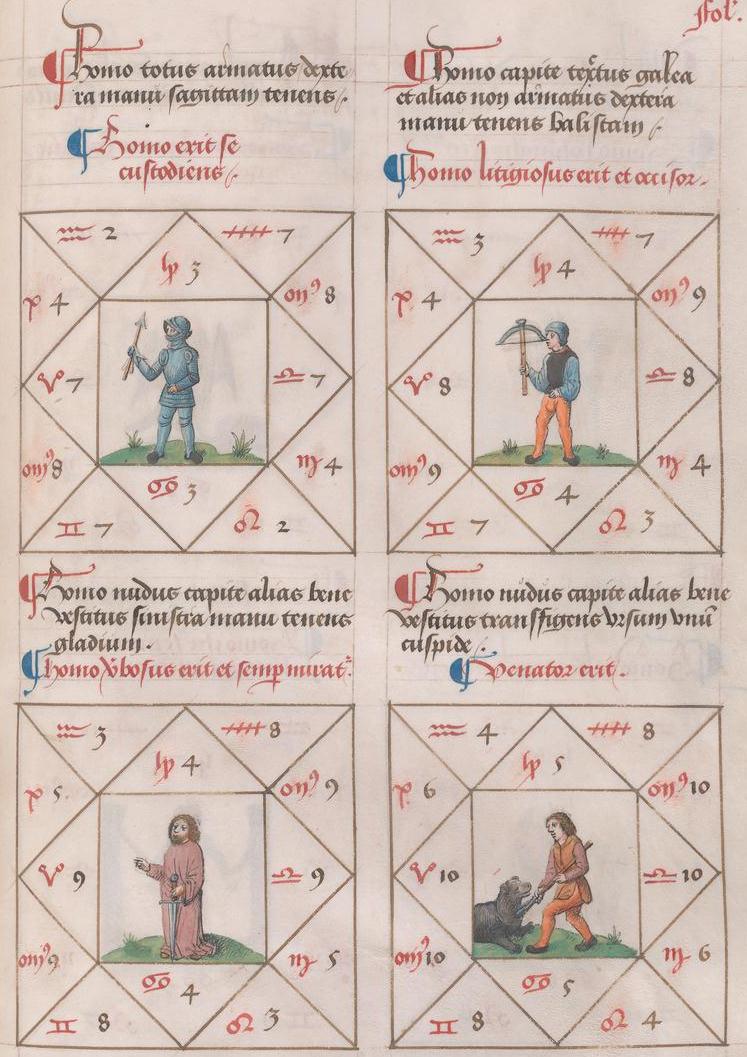 fol.
Homo totus armatus dexte
ra manu sagittam tenens
Homo erit se
custodiens
Homo capite textus galea
et alias non armatus dextera
manu tenens balistam
Homo litigiosus erit et occisor.
♒ 2
7
♑ 3
4
8
♈ 7
♎ 7
8
♍ 4
♋ 3
♊ 7
♌ 2
♒ 3
7
♑ 4
4
9
♈ 8
♎ 8
9
♍ 4
♋ 4
♊ 7
♌ 3
Homo nudus capite alias bene
vestitus sinistra manu tenens
gladium.
Homo vbosus erit et semp mirat
Homo nudus capite alias bene
vestitus transffigens vrsum vnū
cuspide
Venator erit.
♒ 3
8
♑ 4
5
9
♈ 9
♎ 9
9
♍ 5
♋ 4
♊ 8
♌ 3
♒ 4
8
♑ 5
6
10
♈ 10
♎ 10
10
♍ 6
♋ 5
♊ 8
♌ 4